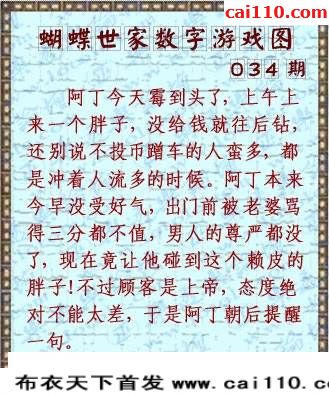 cai110.com
蝴蝶世家数字游戏图
034期
阿丁今天霉到头了，上午上
来一个胖子，没给钱就往后钻，
还别说不投币蹭车的人蛮多，都
是冲着人流多的时候。阿丁本来
今早没受好气，出门前被老婆骂
得三分都不值，男人的尊严都没
了，现在竟让他碰到这个赖皮的
胖子!不过顾客是上帝，态度绝
对不能太差，于是阿丁朝后提醒
一句。
布衣天下首发 www.cai110.com